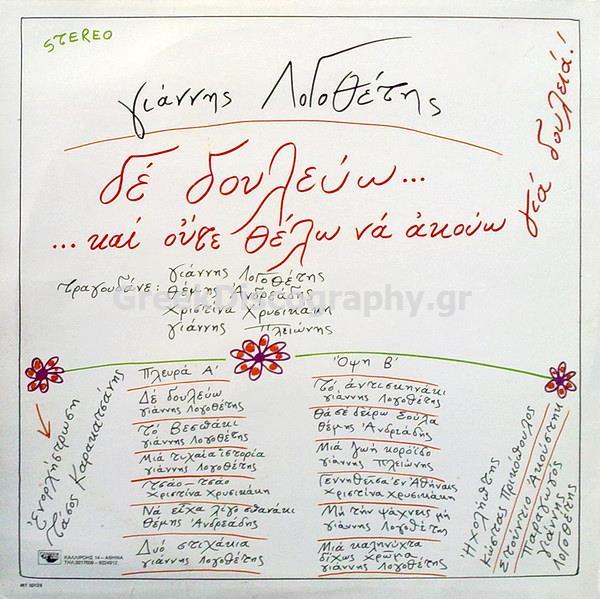 STEREO
γιάννης Λογοθέτης
δέ δουλεύω...
...καί οὔτε θέλω νά ἀκούω
γιά δουλειά!
τραγουδᾶνε: γιάννης Λογοθέτης
θέμης Ἀνδρεάδης
Χριστίνα Χρυσικάκη
γιάννης Πλειώνης
GreekDiscography.gr
Πλευρά Α'
Δέ δουλεύω
γιάννης Λογοθέτης
Τό Βεσπάκι
γιάννης Λογοθέτης
Μιά τυχαία ἱστορία
γιάννης Λογοθέτης
Τσάο-τσάο
Χριστίνα Χρυσικάκη
Νά εἶχα λίγο σπανάκι
θέμης Ἀνδρεάδης
Δυό στιχάκια
γιάννης Λογοθέτης
Ὄψη Β'
Τό ἀντισκηνάκι
γιάννης Λογοθέτης
θά σέ δείρω Σούλα
θέμης Ἀνδρεάδης
Μιά ζωή κορόιδο
γιάννης Πλειώνης
Γεννηθεῖσα ἐν Ἀθήναις
Χριστίνα Χρυσικάκη
Μή τήν ψάχνεις μή
γιάννης Λογοθέτης
Μιά καληνύχτα
δίχως χρῶμα
γιάννης Λογοθέτης
Ἐνορχήστρωση
Τάσος Καρακατσάνης
Ἠχολήπτης
Κώστας Πρικόπουλος
Στούντιο Ἀκούστικ
Παραγωγός
γιάννης
Λογοθέτης
ΚΑΛΛΙΡΟΗΣ 14 - ΑΘΗΝΑ